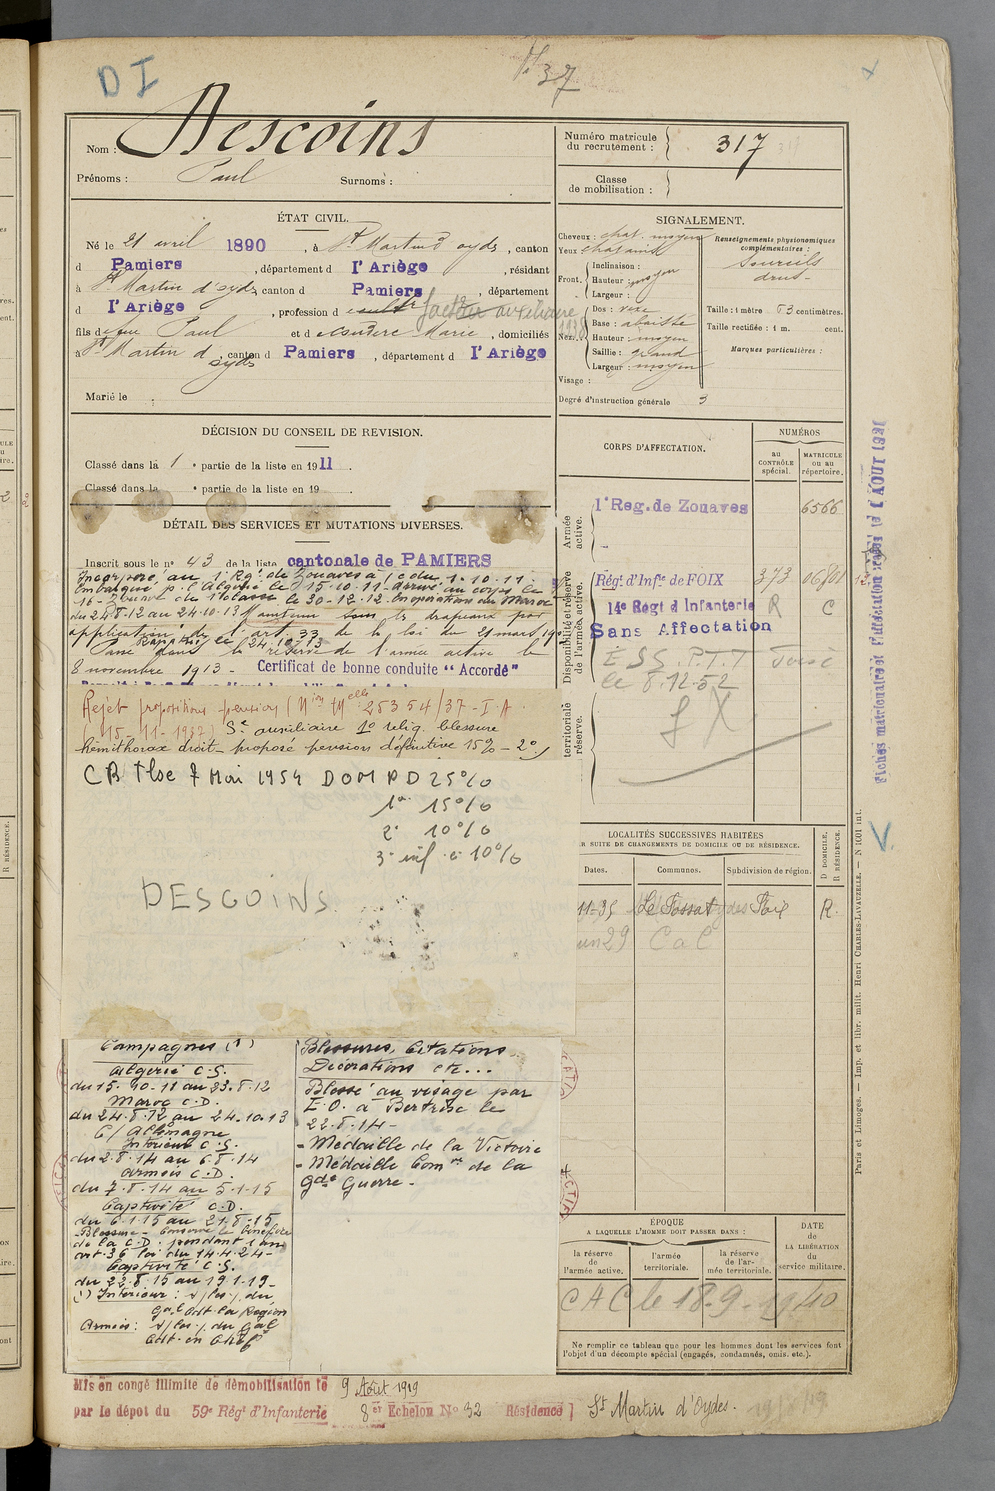 D I
37
Nom : Descoins
Prénoms : Paul Surnoms :
Numéro matricule du recrutement : 317
Classe de mobilisation :
ÉTAT CIVIL.
Né le 21 avril 1890, à St Martin d'oyds, canton
d Pamiers, département d l'Ariège, résidant
à St Martin d'oyds, canton d Pamiers, département
d l'Ariège, profession d cultr facteur auxiliaire
fils d feu Paul et d Marie, domiciliés
à St Martin d'oyds, canton d Pamiers, département d l'Ariège
Marié le :
SIGNALEMENT.
Cheveux : chat. moyen
Yeux chatains
Front. Inclinaison :
Hauteur : moyen
Largeur :
Nez. Dos : vexe
Base : abaissée
Hauteur : moyen
Saillie : grand
Largeur : moyen
Visage :
Degré d'instruction générale 3
Renseignements physionomiques complémentaires :
Sourcils
drus
Taille : 1 mètre 63 centimètres.
Taille rectifiée : 1 m. cent.
Marques particulières :
DÉCISION DU CONSEIL DE REVISION.
Classé dans la 1e partie de la liste en 1911.
Classé dans la e partie de la liste en 19
DÉTAIL DES SERVICES ET MUTATIONS DIVERSES.
Inscrit sous le n° 43 de la liste cantonale de PAMIERS
Incorporé au 1 Rgt de Zouaves à/c du 1.10.11.
Embarqué p. l'Algérie le 15.10.11 - Arrivé au corps le
16 - Zouave de 1e classe le 30-12-12 En opérations du Maroc
du 24-8-12 au 24.10.13 Maintenu sous les drapeaux par
application de l'art 33 de la loi du 21 mars 190
Rapatrié le 24.10.13
Passé dans la réserve de l'armée active le
8 novembre 1913 - Certificat de bonne conduite "Accordé"
Rejet propositions pension (Nion Melle 25354/37-I-A.
15-11-1937) Se auxiliaire 1° reliq. blessure
hémithorax droit - propose pension définitive 15% - 2°
CR Tlse 7 Mai 1954 DOM PD 25%
1° 15%
2° 10%
3° inf. à 10%
DESCOINS
CORPS D'AFFECTATION.
NUMÉROS
au CONTRÔLE spécial.
MATRICULE ou au répertoire.
Armée active.
1er Reg. de Zouaves 6566
Disponibilité et réserve de l'armée active.
Régt d'Infie de FOIX 373
14e Regt d'Infanterie R C
Sans Affectation
E S S. P.T.T
le 8.12.52
territoriale réserve.
Fiches matricule et d'affectation
LOCALITÉS SUCCESSIVES HABITÉES
R SUITE DE CHANGEMENTS DE DOMICILE OU DE RÉSIDENCE.
Dates. Communes. Subdivision de région. D DOMICILE. R RÉSIDENCE.
11-35 Le Fossat Foix R.
29 C a C
Campagnes (1)
Algérie C.S.
du 15-10-11 au 23.8.12
Maroc C.D.
du 24.8.12 au 24.10.13
C/Allemagne
Intérieur C.S.
du 2.8.14 au 6.8.14
Armées C.D.
du 7.8.14 au 5-1-15
Captivité C.D.
du 6.1.15 au 21.8.15
Blessure - Conserve le bénéfice
de la C.D. pendant 1 an
art.36 loi du 14.4.24-
Captivité C.S.
du 22.8.15 au 19.1.19-
(1) Intérieur : s/les o/. du
Gal Cdt. la Région
Armées : s/les o/. du Gal
Cdt. en Chef
Blessures, Citations
Décorations etc...
Blessé au visage par
E.O. à Bertrix le
22.8.14-
- Médaille de la Victoire
- Médaille Comve de la
Gde Guerre.
ÉPOQUE
A LAQUELLE L'HOMME DOIT PASSER DANS :
la réserve de l'armée active.
l'armée territoriale.
la réserve de l'armée territoriale.
DATE DE LA LIBÉRATION du service militaire.
C A C le 18-9-1940
Ne remplir ce tableau que pour les hommes dont les services font
l'objet d'un décompte spécial (engagés, condamnés, omis. etc.).
Paris et Limoges. — Imp. et libr. milit. Henri CHARLES-LAVAUZELLE. — N 1001 int.
Mis en congé illimité de démobilisation le 9 Août 1919
par le dépôt du 59e Régt d'Infanterie 8er Echelon No 32 Résidence] St Martin d'Oydes.